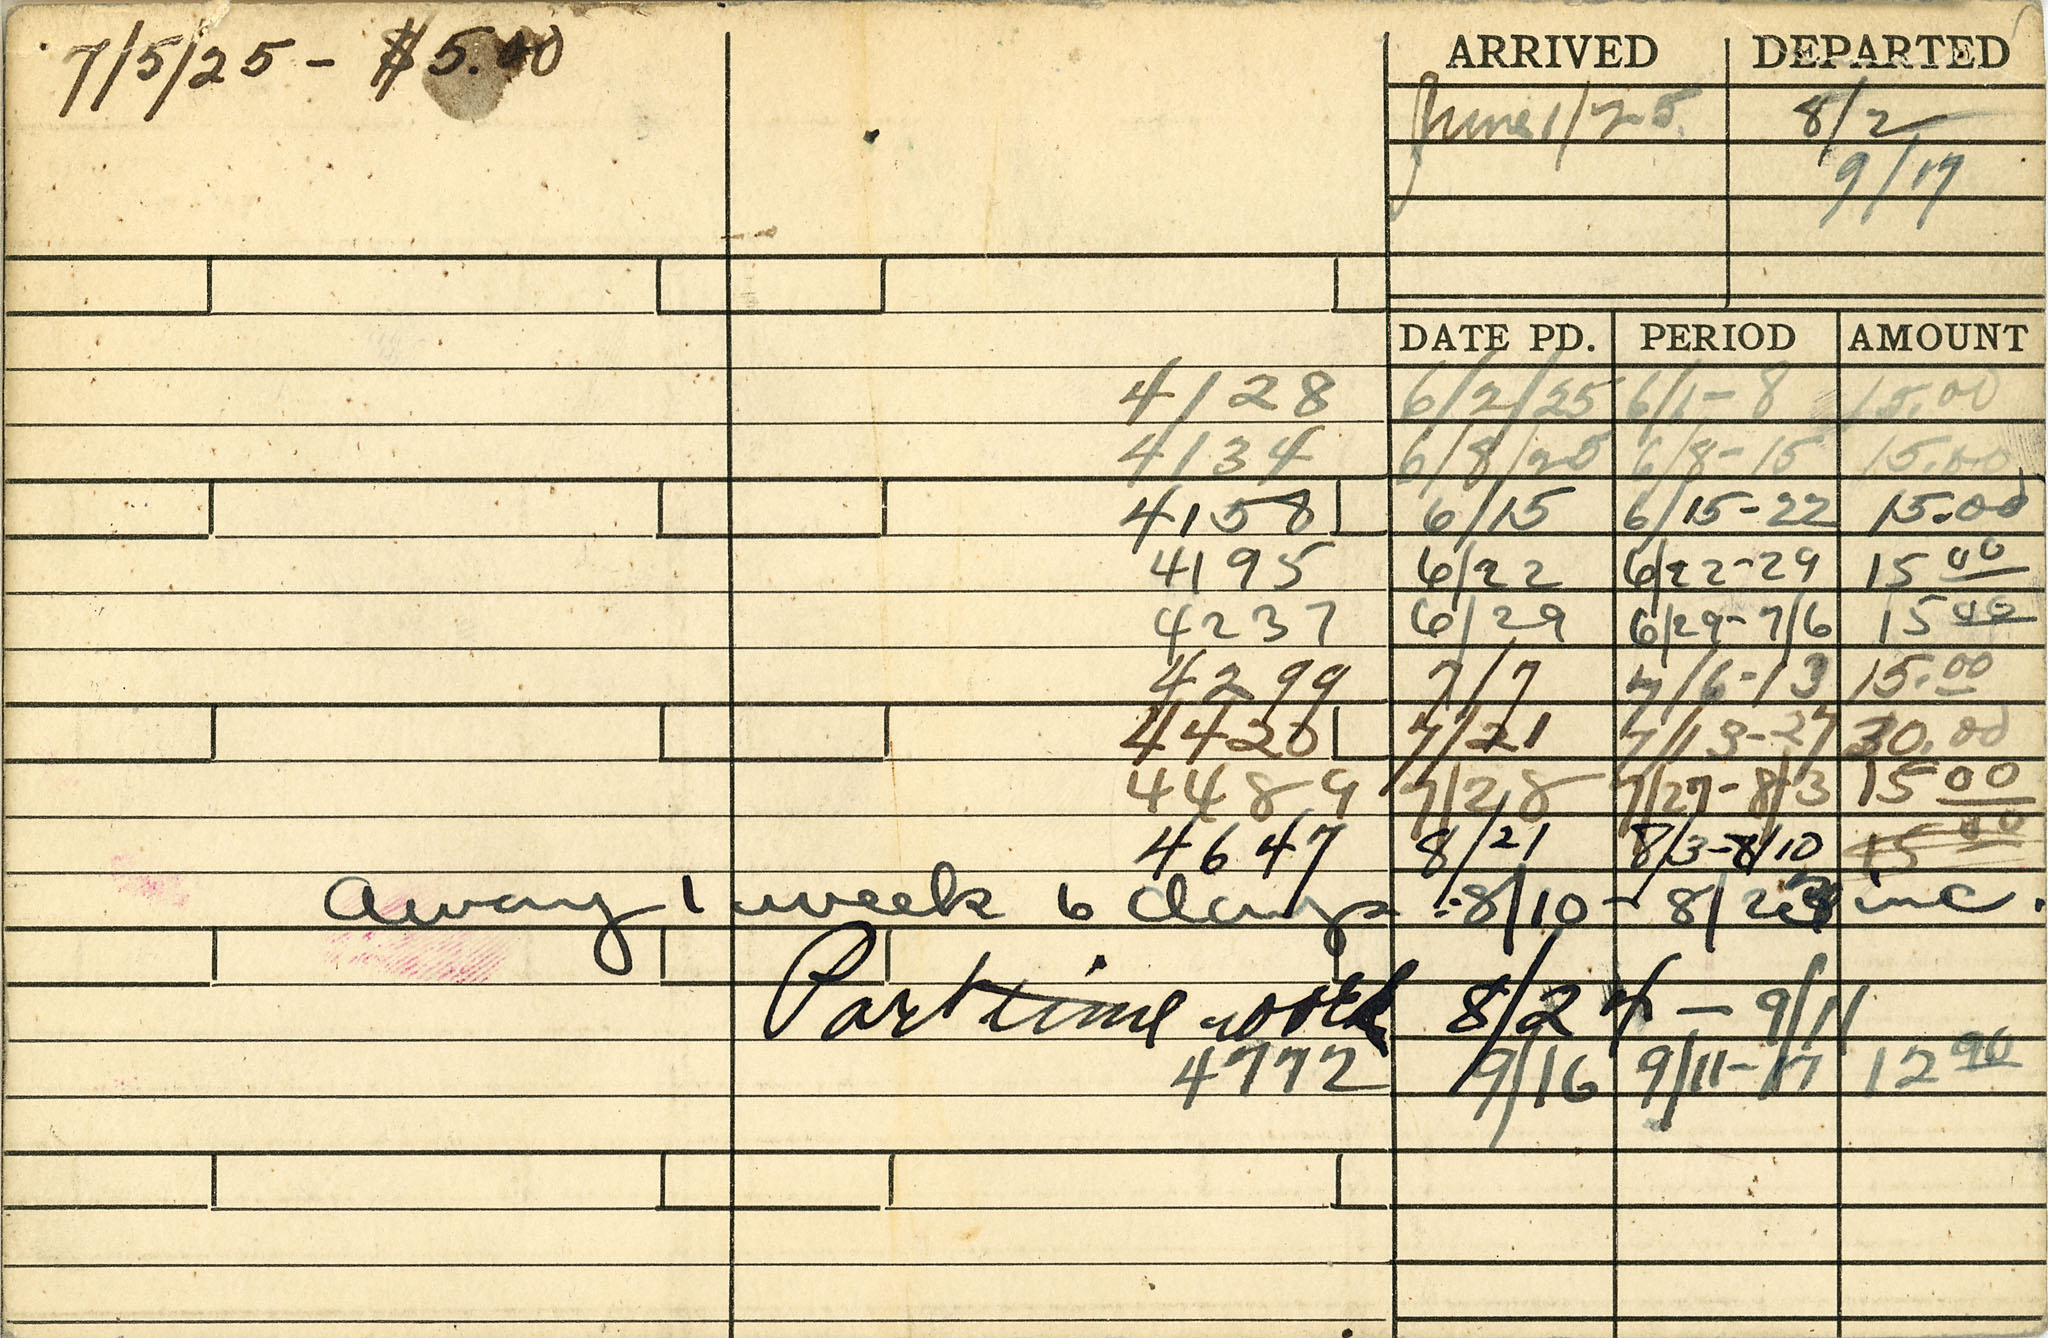 7/5/25 - $5.00
ARRIVED DEPARTED
June 1/25. 8/2
9/17
DATE PD. PERIOD AMOUNT
4128 6/2/25 6/1-8 15.00
4134 6/8/25 6/8-15 15.00
4158 6/15 6/15-22 15.00
4195 6/22 6/22-29 15 00
4237 6/29 6/29-7/6 15 00
4299 7/7 7/6-13 15.00
4420 7/21 7/13-27 30.00
4489 7/28 7/27-8/3 15 00
4647 8/21 8/3-8/10 15 00
away 1 week 6 days :-8/10 - 8/23 inc.
Part time work 8/24 - 9/11
4772 9/16 9/11-17 12 90